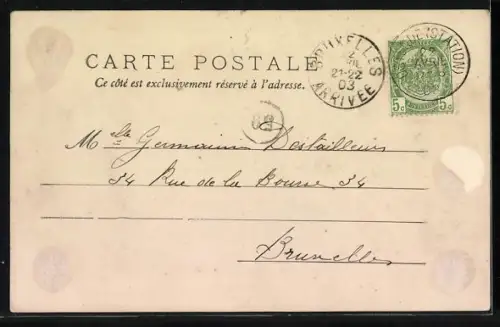 CARTE POSTALE
Ce côté est exclusivement réservé à l'adresse.
BRUXELLES
21-22
03
ARRIVÉE
(STATION)
5c 5c
Mlle Germaine Destailleurs
34 Rue de la Bourse 34
Bruxelles